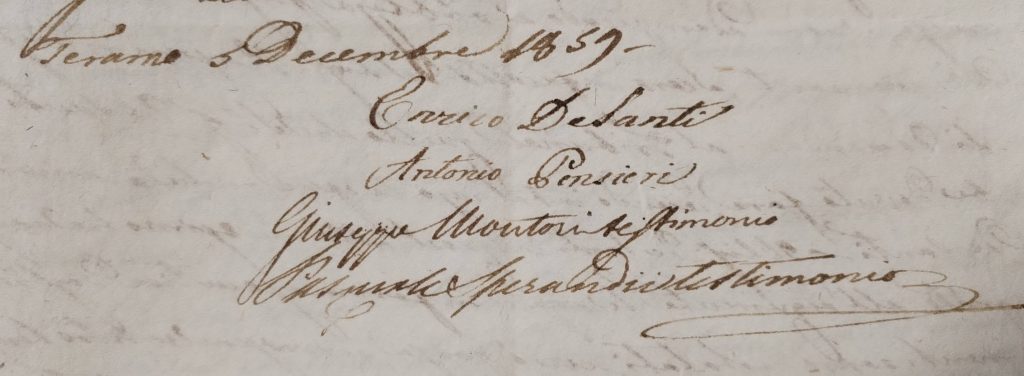 Teramo 5 Decembre 1859-
Enrico DeSanti
Antonio Pensieri
Giuseppe Montori testimonio
Pasquale Sperandii testimonio